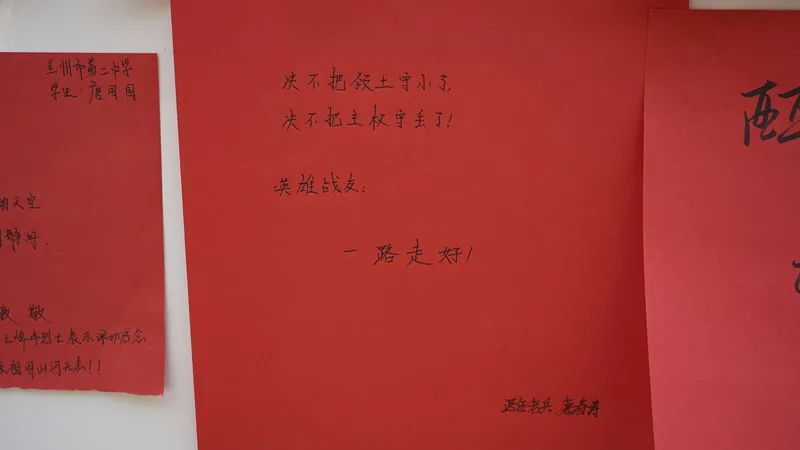 兰州市第二中学
学生：唐国国
的天空
静好.
致敬
王焯冉烈士表示深切感念.
祖国山河无恙!!
决不把领土守小了,
决不把主权守丢了!
英雄战友:
一路走好!
退伍老兵